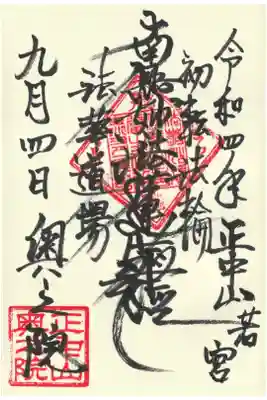 令和四年 正中山若宮
初転法輪
南無妙法蓮華経
法華道場
九月四日 奥之院
正中山
奥之院